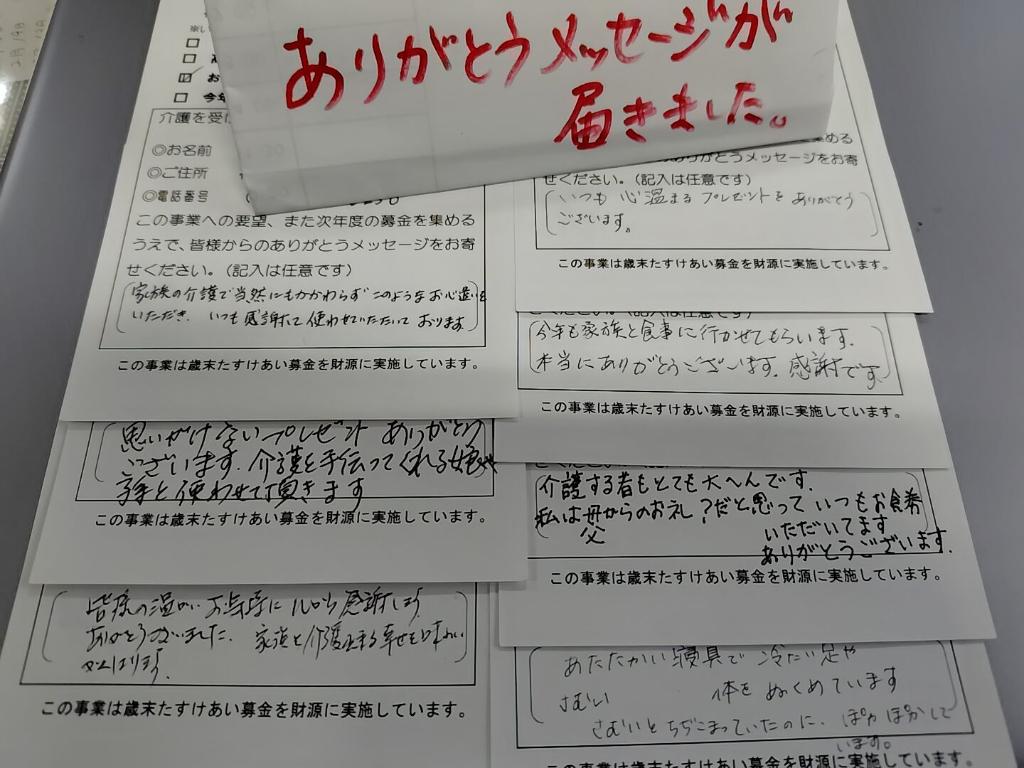 ありがとうメッセージが
届きました。
介護を受け
◎お名前
◎ご住所
◎電話番号
この事業への要望、また次年度の募金を集める
うえで、皆様からのありがとうメッセージをお寄
せください。(記入は任意です)
家族の介護で当然にもかかわらず このような お心遣いを
いただき、いつも感謝して使わせていただいております
この事業は歳末たすけあい募金を財源に実施しています。
思いがけないプレゼント ありがとう
ございます。介護を手伝ってくれる娘や
と使わせて頂きます
この事業は歳末たすけあい募金を財源に実施しています。
皆様の温かい お気持に 心から感謝します
ありがとうございました。家族と介護出来る幸せを味わい
がんばります。
この事業は歳末たすけあい募金を財源に実施しています。
める
のありがとうメッセージをお寄
せください。(記入は任意です)
いつも 心温まる プレゼントを ありがとう
ございます。
この事業は歳末たすけあい募金を財源に実施しています。
今年も家族と食事に行かせてもらいます。
本当にありがとうございます。感謝です
この事業は歳末たすけあい募金を財源に実施しています。
介護する者もとても大へんです。
私は母からのお礼?だと思って いつもお食券
父
いただいてます
ありがとうございます。
この事業は歳末たすけあい募金を財源に実施しています。
あたたかい寝具で 冷たい足や
さむい 体を ぬくめています
さむいと ちぢこまっていたのに、ぽかぽかして
います。